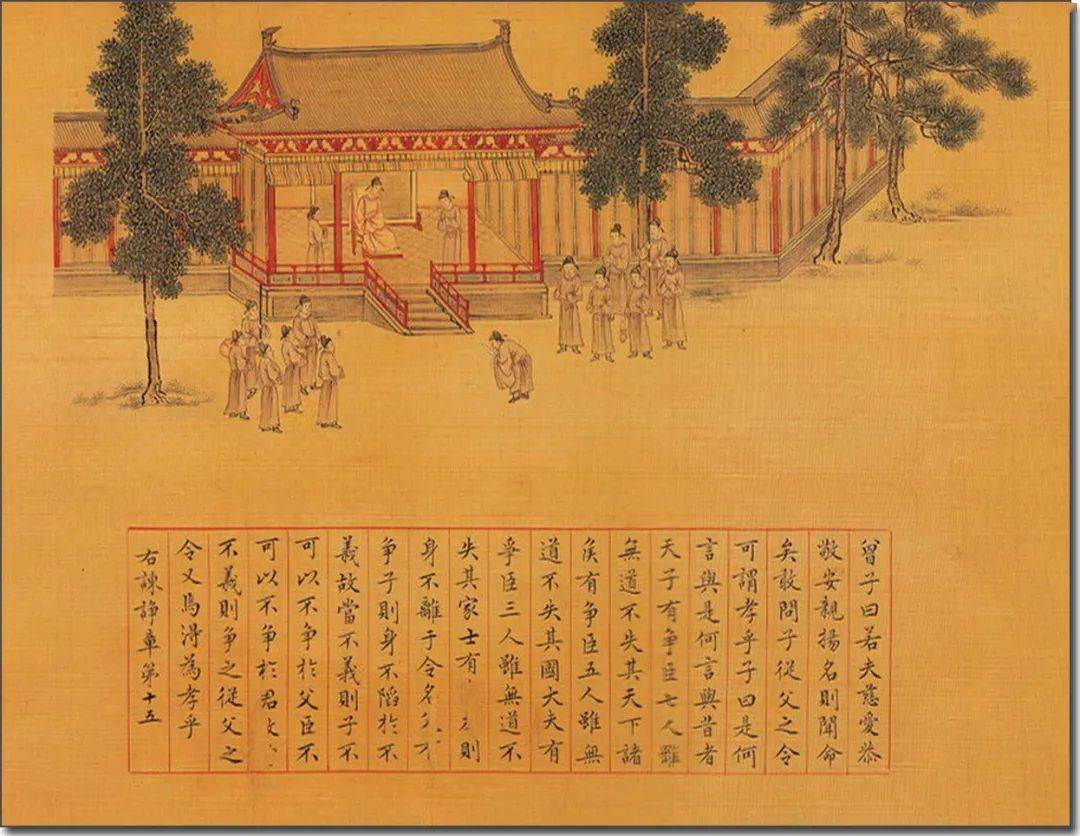 曾子曰若夫慈愛恭
敬安親揚名則聞命
矣敢問子從父之令
可謂孝乎子曰是何
言與是何言與昔者
天子有争臣七人雖
無道不失其天下諸
侯有争臣五人雖無
道不失其國大夫有
爭臣三人雖無道不
失其家士有則
身不離于令名
争子則身不陷於不
義故當不義則子不
可以不争於父臣不
可以不争於君故
不義則争之從父之
令又焉得為孝乎
右諫諍章第十五